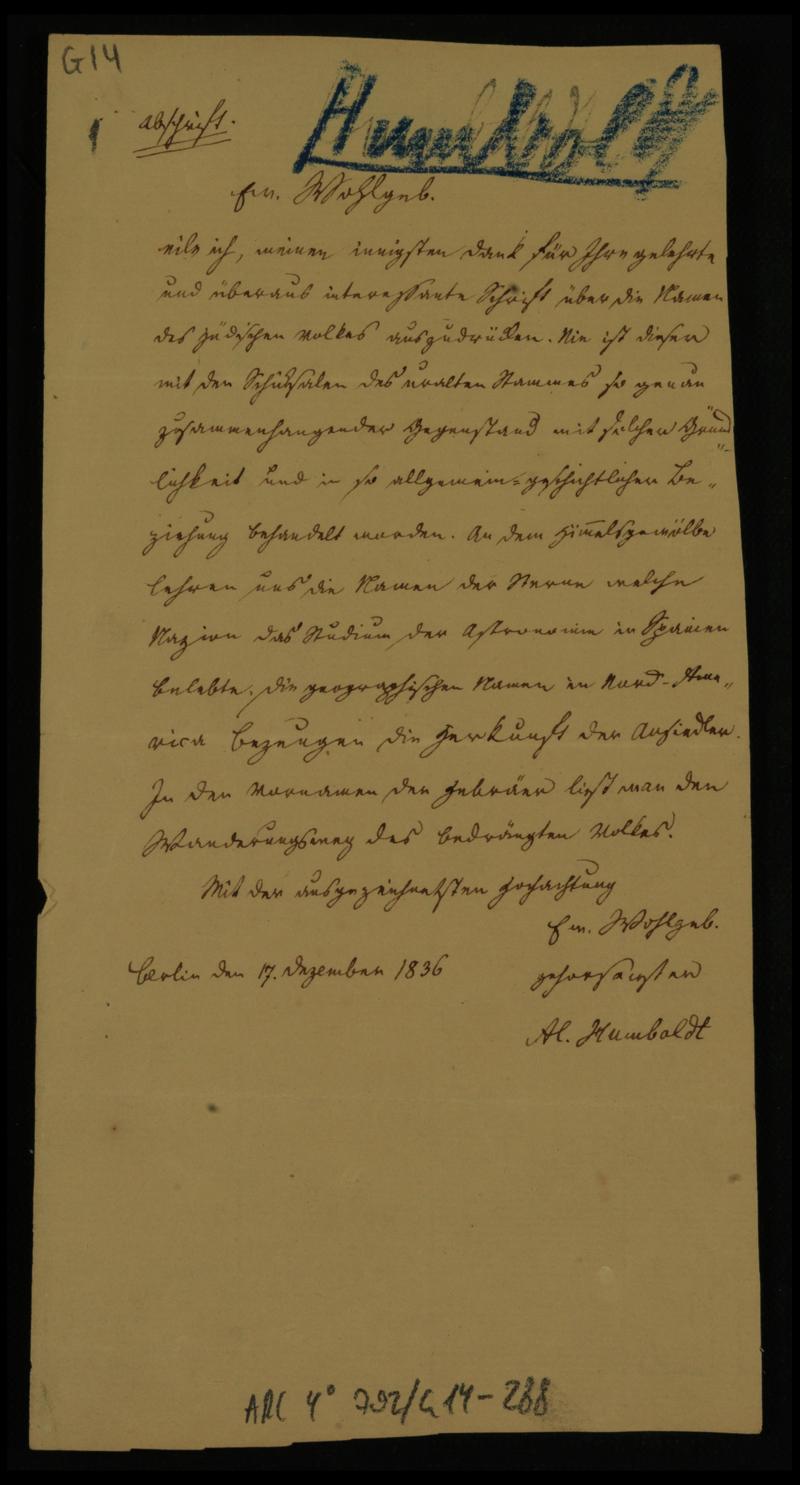 G14
Humboldt
1 Abschrift.
Ew. Wohlgeb.
eile ich, meinen innigsten Dank für Ihre gelehrte
und überaus interessante Schrift über die Namen
des jüdischen Volkes auszudrücken. Nie ist dieser
mit den Schicksalen des uralten Stammes so genau
zusammenhangender Gegenstand mit solcher Gründ„
lichkeit und in so allgemein-geschichtlicher Be„
ziehung behandelt worden. An dem Himmelsgewölbe
lehren uns die Namen der Sterne welche
Nazion das Studium der Astronomie in Spanien
belebte; die geographischen Namen in Nord-Ame„
rica bezeugen die Herkunft der Ansiedler.
In den Vornamen der Hebräer liest man den
Wanderungsweg des bedrängten Volkes.
Mit der ausgezeichnetsten Hochachtung
Ew. Wohlgeb.
Berlin den 17. Dezember 1836
gehorsamster
Al. Humboldt
ARC 4° 792/G14-288